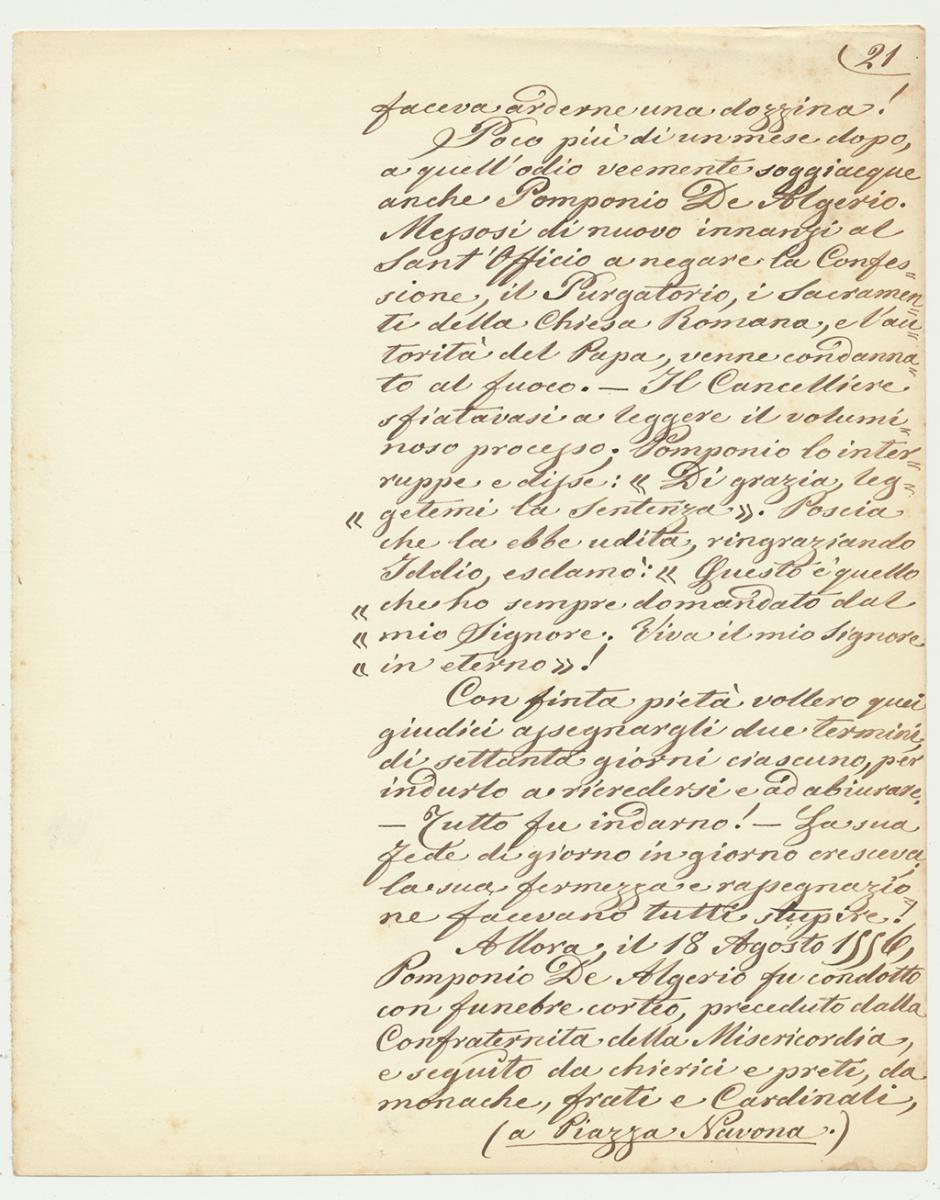 21
faceva arderne una dozzina!
Poco più di un mese dopo,
a quell'odio veemente soggiacque
anche Pomponio De Algerio.
Messosi di nuovo innanzi al
Sant'Officio a negare la Confes=
sione, il Purgatorio, i Sacramen=
ti della Chiesa Romana, e l'au=
torità del Papa, venne condanna=
to al fuoco. — Il Cancelliere
sfiatavasi a leggere il volumi=
noso processo; Pomponio lo inter=
ruppe e disse: « Di grazia, leg=
« getemi la sentenza ». Poscia
che la ebbe udita, ringraziando
Iddio, esclamò: « Questo è quello
« che ho sempre domandato dal
« mio Signore. Viva il mio Signore
« in eterno »!
Con finta pietà vollero quei
giudici assegnargli due termini,
di settanta giorni ciascuno, per
indurlo a ricredersi e ad abiurare.
— Tutto fu indarno! — La sua
fede di giorno in giorno cresceva;
la sua fermezza e rassegnazio=
ne facevano tutti stupire!
Allora, il 18 Agosto 1556,
Pomponio De Algerio fu condotto
con funebre corteo, preceduto dalla
Confraternita della Misericordia,
e seguito da chierici e preti, da
monache, frati e Cardinali,
(a Piazza Navona.)